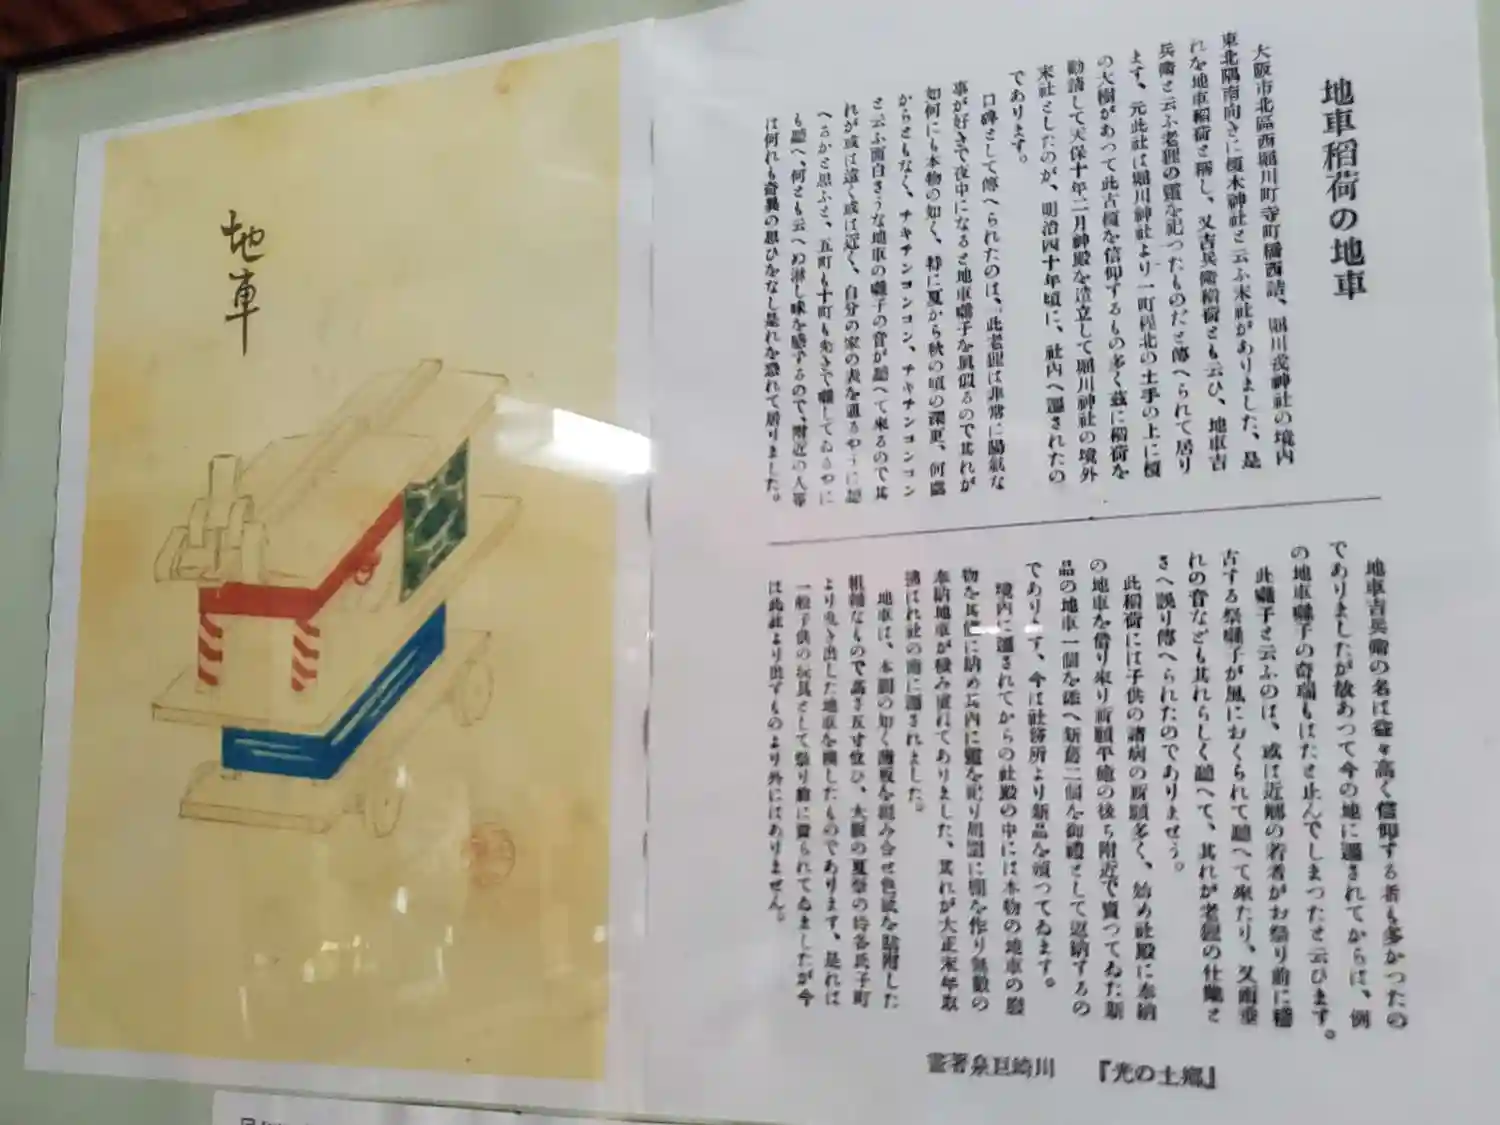 地車稲荷の地車
大阪市北區西堀川町寺町橋西詰、堀川戎神社の境内
東北隅南向きに榎木神社と云ふ末社がありました、是
れを地車稲荷と稱し、又吉兵衞稲荷とも云ひ、地車吉
兵衞と云ふ老狸の靈を祀つたものだと傳へられて居り
ます、元此社は堀川神社より一町程北の土手の上に榎
の大樹があつて此古榎を信仰するもの多く玆に稲荷を
勸請して天保十年二月神殿を造立して堀川神社の境外
末社としたのが、明治四十年頃に、社内へ遷されたの
であります。
口碑として傳へられたのは、此老狸は非常に陽氣な
事が好きで夜中になると地車囃子を眞似るので其れが
如何にも本物の如く、特に夏から秋の頃の深更、何處
からともなく、チキチンコンコン、チキチンコンコン
と云ふ面白さうな地車の囃子の音が聽へて來るので其
れが或は遠く或は近く、自分の家の表を通るやうに聽
へるかと思ふと、五町も十町も先きで囃してゐるやに
も聽へ、何とも云へぬ淋し味を感ずるので、附近の人等
は何れも奇異の思ひをなし是れを恐れて居りました。
地車吉兵衞の名は益々高く信仰する者も多かつたの
でありましたが故あつて今の地に遷されてからは、例
の地車囃子の奇瑞もはたと止んでしまつたと云ひます。
此囃子と云ふのは、或は近鄕の若者がお祭り前に稽
古する祭囃子が風におくられて聽へて來たり、又雨垂
れの音なども其れらしく聽へて、其れが老狸の仕業と
さへ誤り傳へられたのでありませう。
此稲荷には子供の諸病の祈願多く、始め社殿に奉納
の地車を借り來り祈願平癒の後ち附近で賣つてゐた新
品の地車一個を添へ都合二個を御禮として返納するの
であります、今は社務所より新品を頒つてゐます。
境内に遷されてからの社殿の中には本物の地車の彫
物を其儘に納め其内に靈を祀り周圍に棚を作り無數の
奉納地車が積み重ねてありました、其れが大正末年取
溝ばれ社の南に遷されました。
地車は、本圖の如く薄板を組み合せ色紙を貼附した
粗雜なもので高さ五寸位ひ、大阪の夏祭の時各氏子町
より曳き出した地車を模したものであります、是れは
一般子供の玩具として祭り前に賣られてゐましたが今
は此社より出すものより外にはありません。
『鄕土の光』　川崎巨泉著書
地車